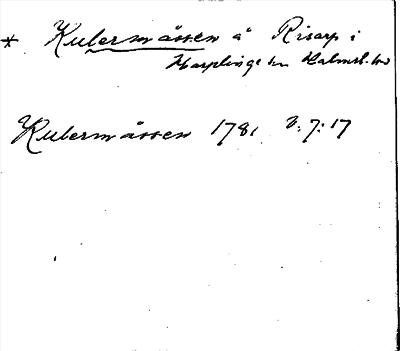 * Kulermåssen å Risarp i
Harplinge sn Halmst. hd
Kulermåssen 1781 2:7:17